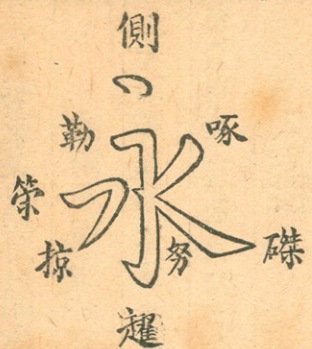 側
勒 啄
策
永
掠 努 磔
趯